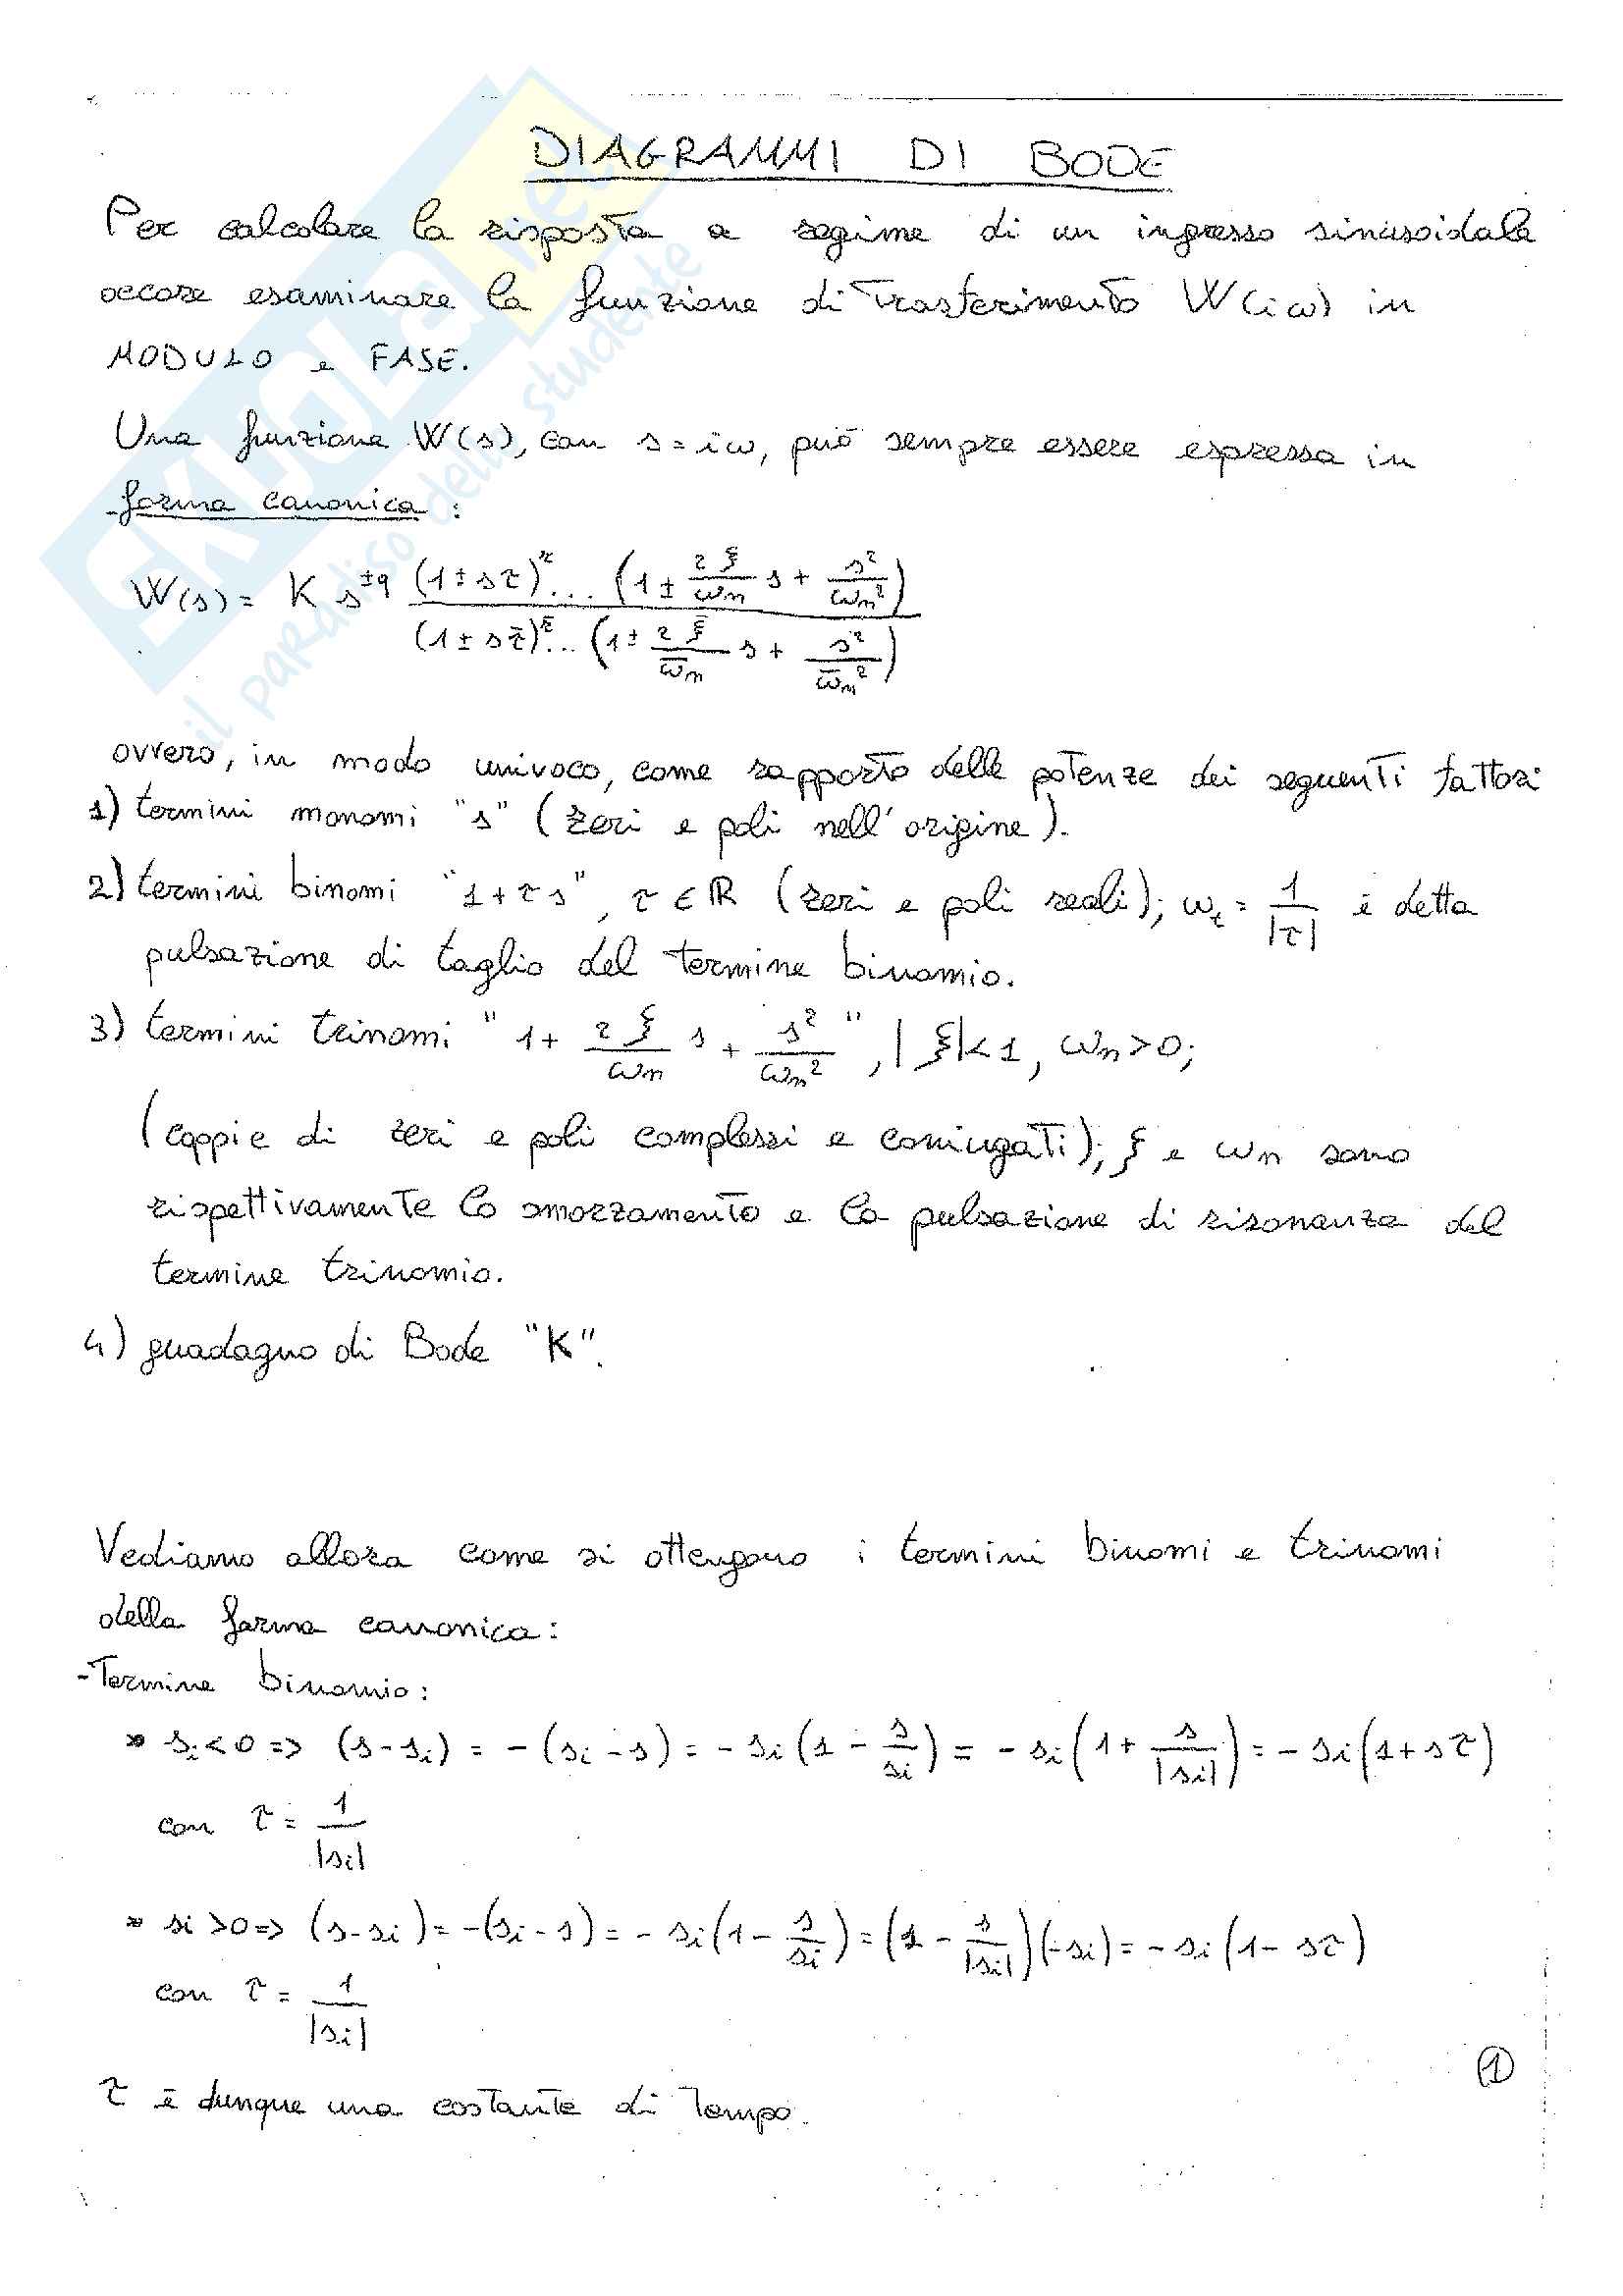 DIAGRAMMI DI BODE
Per calcolare la risposta a regime di un ingresso sinusoidale
occore esaminare la funzione di trasferimento W(iω) in
MODULO e FASE.
Una funzione W(s), con s=iω, può sempre essere espressa in
forma canonica:
W(s) = K s^±q (1±sτ)^r ... (1 ± 2ξ/ωn s + s²/ωn²) / (1±sτ̄)^r̄ ... (1 ± 2ξ̄/ω̄n s + s²/ω̄n²)
ovvero, in modo univoco, come rapporto delle potenze dei seguenti fattori
1) termini monomi "s" (zeri e poli nell'origine).
2) termini binomi "1+τs", τ∈ℝ (zeri e poli reali); ωt = 1/|τ| è detta
pulsazione di taglio del termine binomio.
3) termini trinomi "1 + 2ξ/ωn s + s²/ωn²", |ξ|<1, ωn>0;
(coppie di zeri e poli complessi e coniugati); ξ e ωn sono
rispettivamente lo smorzamento e la pulsazione di risonanza del
termine trinomio.
4) guadagno di Bode "K".
Vediamo allora come si ottengono i termini binomi e trinomi
della forma canonica:
-Termine binomio:
* si<0 => (s-si) = -(si-s) = -si(1 - s/si) = -si(1 + s/|si|) = -si(1+sτ)
con τ = 1/|si|
* si>0 => (s-si) = -(si-s) = -si(1 - s/si) = (1 - s/|si|)(-si) = -si(1-sτ)
con τ = 1/|si|
τ è dunque una costante di tempo.
①
SKUOLA.net
il paradiso dello studente